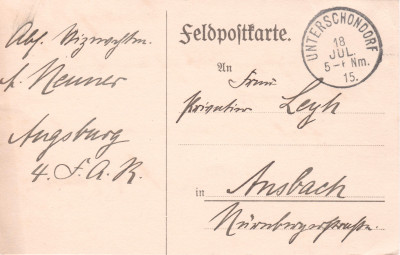 Abs. Vizwachtm.
A. Neuner
Augsburg
4. F. A. R.
Feldpostkarte.
An
Frau
Privatier Leyh
in Ansbach
Nürnbergerstraße.
UNTERSCHONDORF
18
JUL.
5-
Nm.
15.